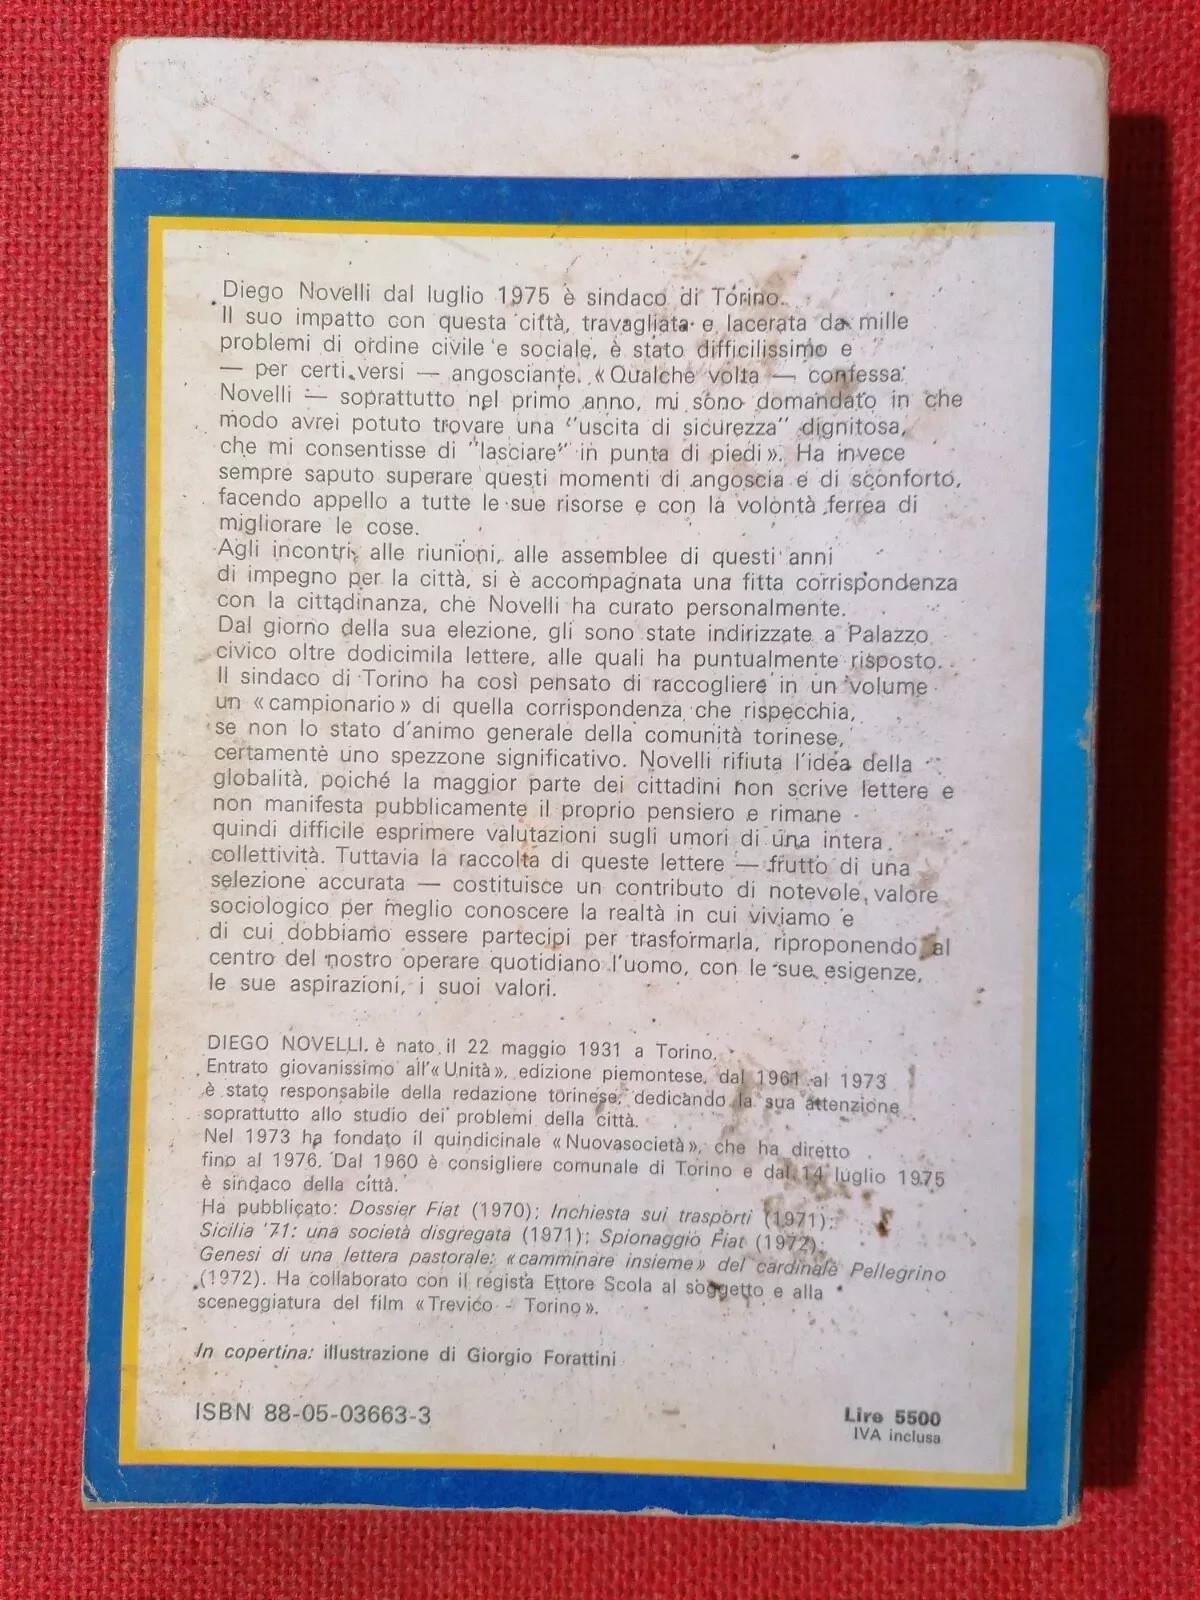 Diego Novelli dal luglio 1975 è sindaco di Torino.
Il suo impatto con questa città, travagliata e lacerata da mille
problemi di ordine civile e sociale, è stato difficilissimo e
— per certi versi — angosciante. «Qualche volta — confessa
Novelli — soprattutto nel primo anno, mi sono domandato in che
modo avrei potuto trovare una "uscita di sicurezza" dignitosa,
che mi consentisse di "lasciare" in punta di piedi». Ha invece
sempre saputo superare questi momenti di angoscia e di sconforto,
facendo appello a tutte le sue risorse e con la volontà ferrea di
migliorare le cose.
Agli incontri, alle riunioni, alle assemblee di questi anni
di impegno per la città, si è accompagnata una fitta corrispondenza
con la cittadinanza, che Novelli ha curato personalmente.
Dal giorno della sua elezione, gli sono state indirizzate a Palazzo
civico oltre dodicimila lettere, alle quali ha puntualmente risposto.
Il sindaco di Torino ha così pensato di raccogliere in un volume
un «campionario» di quella corrispondenza che rispecchia,
se non lo stato d'animo generale della comunità torinese,
certamente uno spezzone significativo. Novelli rifiuta l'idea della
globalità, poiché la maggior parte dei cittadini non scrive lettere e
non manifesta pubblicamente il proprio pensiero e rimane
quindi difficile esprimere valutazioni sugli umori di una intera
collettività. Tuttavia la raccolta di queste lettere — frutto di una
selezione accurata — costituisce un contributo di notevole valore
sociologico per meglio conoscere la realtà in cui viviamo e
di cui dobbiamo essere partecipi per trasformarla, riproponendo al
centro del nostro operare quotidiano l'uomo, con le sue esigenze,
le sue aspirazioni, i suoi valori.
DIEGO NOVELLI è nato il 22 maggio 1931 a Torino.
Entrato giovanissimo all'«Unità», edizione piemontese, dal 1961 al 1973
è stato responsabile della redazione torinese, dedicando la sua attenzione
soprattutto allo studio dei problemi della città.
Nel 1973 ha fondato il quindicinale «Nuovasocietà», che ha diretto
fino al 1976. Dal 1960 è consigliere comunale di Torino e dal 14 luglio 1975
è sindaco della città.
Ha pubblicato: Dossier Fiat (1970); Inchiesta sui trasporti (1971);
Sicilia '71: una società disgregata (1971); Spionaggio Fiat (1972);
Genesi di una lettera pastorale: «camminare insieme» del cardinale Pellegrino
(1972). Ha collaborato con il regista Ettore Scola al soggetto e alla
sceneggiatura del film «Trevico - Torino».
In copertina: illustrazione di Giorgio Forattini
ISBN 88-05-03663-3
Lire 5500
IVA inclusa